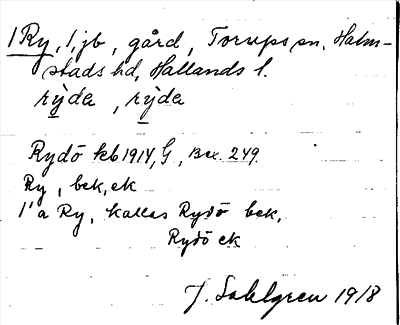 1 Ry, 1, jb, gård, Torups sn, Halm-
stads hd, Hallands l.
rȳda, rȳda
Rydö kb 1914, G, Bex. 249.
Ry, bek, ek
1'a Ry, kallas Rydö bek,
Rydö ek
J. Sahlgren 1918